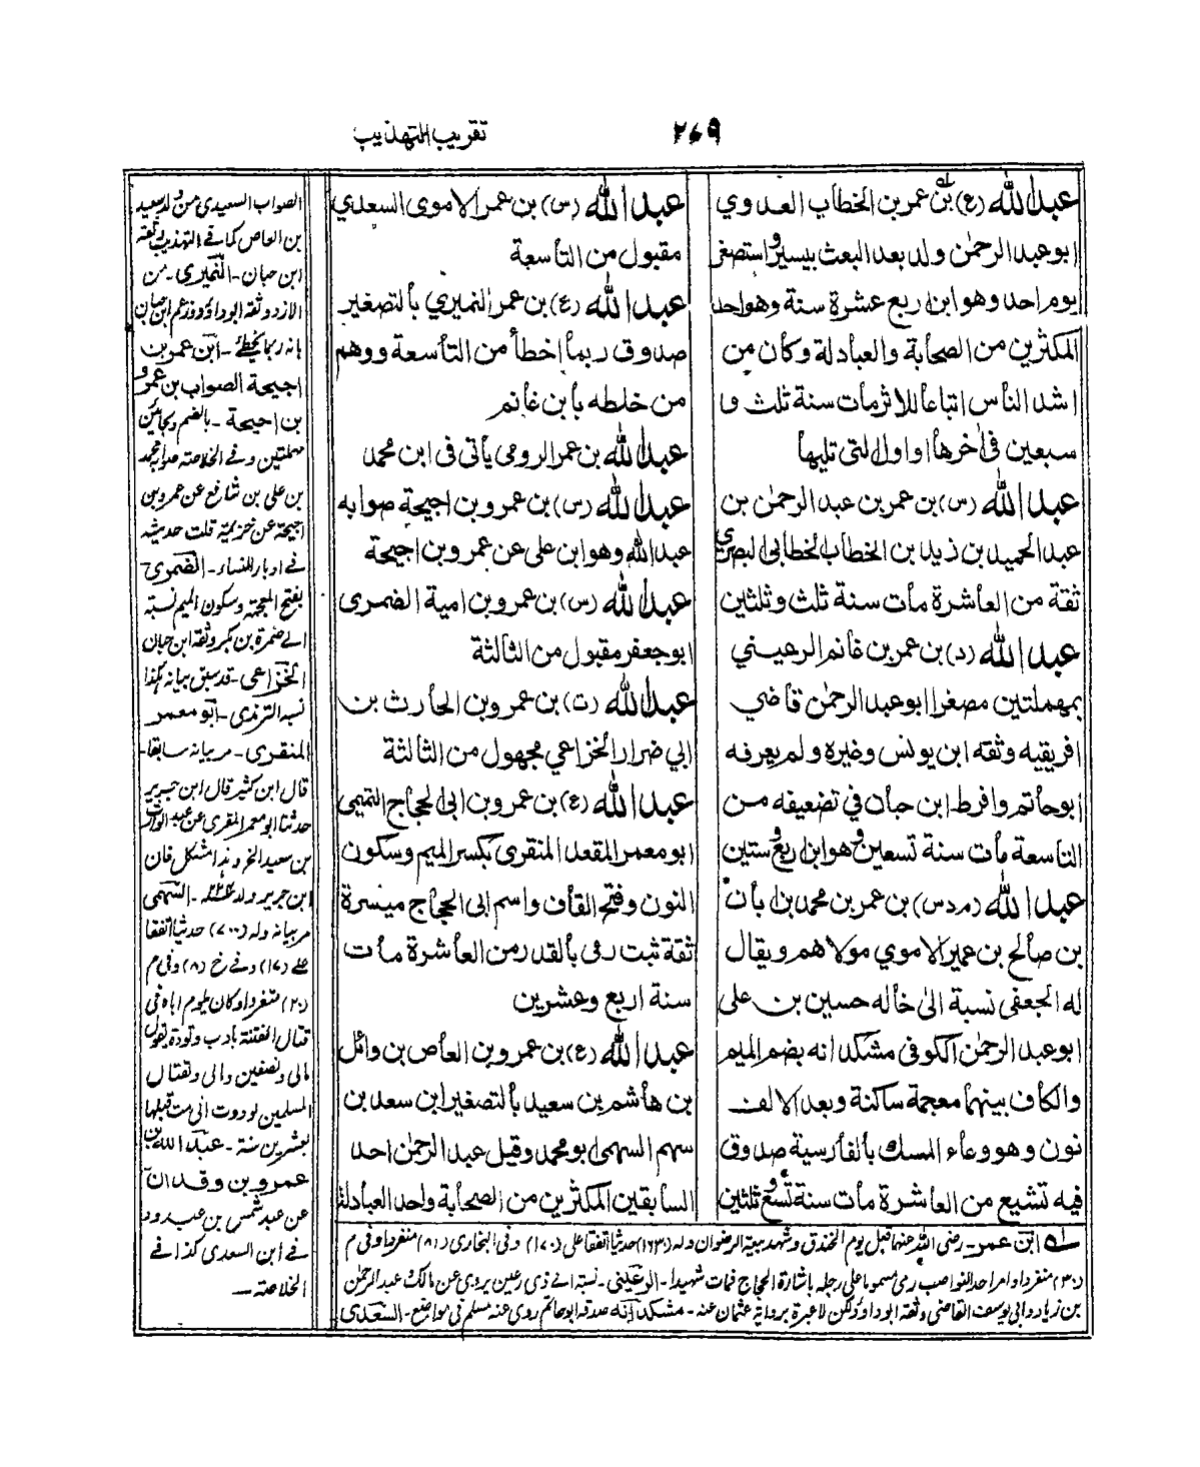 ٢٦٩
تقريب التهذيب
عبد الله (ع) بن عمر بن الخطاب العدوي
ابو عبد الرحمٰن ولد بعد البعث بيسير واستصغر
يوم احد وهو ابن اربع عشرة سنة وهو احد
المكثرين من الصحابة والعبادلة وكان من
اشد الناس اتباعا للاثر مات سنة ثلث و
سبعين في اخرها او اول التي تليها
عبد الله (س) بن عمر بن عبد الرحمٰن بن
عبد الحميد بن زيد بن الخطاب الخطابي البصري
ثقة من العاشرة مات سنة ثلث وثلثين
عبد الله (د) بن عمر بن غانم الرعيني
بمهملتين مصغرا ابو عبد الرحمٰن قاضي
افريقيه وثقه ابن يونس وغيره ولم يعرفه
ابو حاتم وافرط ابن حبان في تضعيفه من
التاسعة مات سنة تسعين وهو ابن اربع وستين
عبد الله (م د س) بن عمر بن محمد بن ابان
بن صالح بن عمير الاموي مولاهم ويقال
له الجعفي نسبة الى خاله حسين بن على
ابو عبد الرحمٰن الكوفي مشكدانه بضم الميم
والكاف بينهما معجمة ساكنة وبعد الالف
نون وهو وعاء المسك بالفارسية صدوق
فيه تشيع من العاشرة مات سنة تسع وثلثين
عبد الله (س) بن عمر الاموى السعدي
مقبول من التاسعة
عبد الله (ع) بن عمر النميري بالتصغير
صدوق ربما اخطأ من التاسعة ووهم
من خلطه بابن غانم
عبد الله بن عمر الرومي يأتى فى ابن محمد
عبد الله (س) بن عمرو بن احيحة صوابه
عبد الله وهو ابن على عن عمرو بن احيحة
عبد الله (س) بن عمرو بن امية الضمرى
ابو جعفر مقبول من الثالثة
عبد الله (ت) بن عمرو بن الحارث بن
ابي ضرار الخزاعي مجهول من الثالثة
عبد الله (ع) بن عمرو بن ابى الحجاج التميمى
ابو معمر المقعد المنقرى بكسر الميم وسكون
النون وفتح القاف واسم ابى الحجاج ميسرة
ثقة ثبت رمى بالقدر من العاشرة مات
سنة اربع وعشرين
عبد الله (ع) بن عمرو بن العاص بن وائل
بن هاشم بن سعيد بالتصغير ابن سعد بن
سهم السهمى ابو محمد وقيل عبد الرحمٰن احد
السابقين المكثرين من الصحابة واحد العبادلة
الصواب السعيدى من ولد سعيد
بن العاص كما في التهذيب ثقة
ابن حبان - النميرى - من
الازد وثقه ابو داؤد وزعم ابن حبان
انه ربما يخطئ - ابن عمرو بن
احيحة الصواب بن عمرو
بن احيحة - بالضم وبحائين
مهملتين وفي الخلاصة صوابه محمد
بن على بن شافع عن عمرو بن
احيحة عن خزيمة قلت حديثه
في ادبار النساء - الضمرى
بفتح المعجمة وسكون الميم نسبة
الى ضمرة بن بكر وثقه ابن حبان
الخزاعى - قد سبق بيانه هكذا
نسبه الترمذى - ابو معمر
المنقرى - مر بيانه سابقا
قال ابن كثير قال ابن جرير
حدثنا ابو معمر المنقرى عن عبد الوارث
بن سعيد الخ وهذا مشكل فان
ابن جرير ولد - السهمى
مر بيانه وله (٧٠٠) حديثا اتفقا
على (١٧) وفي خ (٨) وفى م
(٢٠) منفردا وكان يلوم اباه فى
قتال الفتنة بادب وتودة يقول
مالى ولصفين والى ولقتال
المسلمين لوددت انى مت قبلها
بعشرين سنة - عبد الله بن
عمرو بن وقدان
عن عبد شمس بن عبد ود
فى ابن السعدى كذا فے
الخلاصة -
ابن عمر - رضى الله عنهما قبل يوم الخندق وشهد بيعة الرضوان وله (١٦٣٠) حديثا اتفقا على (١٧٠) وفى البخارى (٨١) منفردا وفى م
(٣٠) منفردا وامر احد النواصب رمى مسموما على رجله باشارة الحجاج فمات شهيدا - الرعينى - نسبة الى ذى رعين يروى عن مالك وعبد الرحمٰن
بن زياد وابى يوسف القاضى وثقه ابو داؤد ولكن لا عبرة برواية عثمان عنه - مشكدانه صدقه ابو حاتم روى عنه مسلم فى مواضع - السعدى